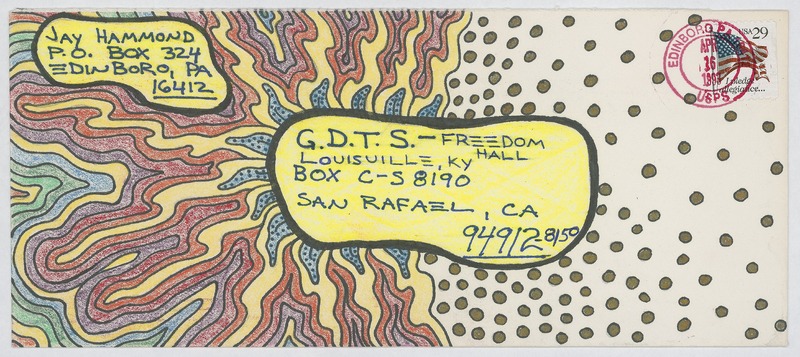 JAY HAMMOND
P.O. BOX 324
EDINBORO, PA
16412
G.D.T.S. — FREEDOM
HALL
LOUISVILLE, KY
BOX C-S 8190
SAN RAFAEL, CA
94912-8190
EDINBORO PA
APR
16
USPS
USA 29
I pledge
allegiance...